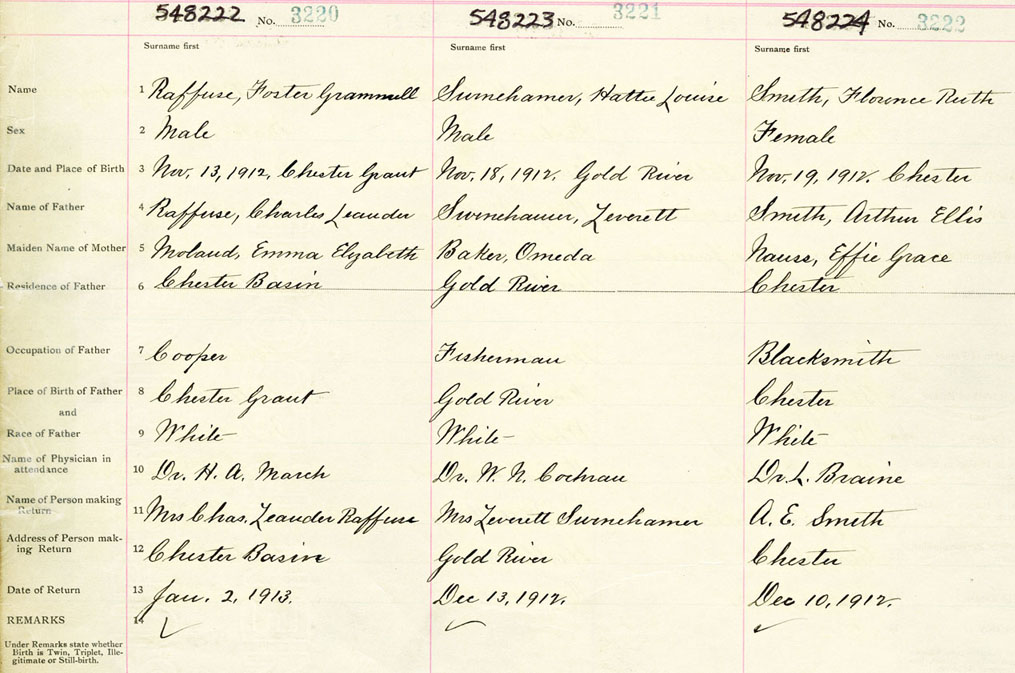 548222 No. 3220 548223 No. 3221 548224 No. 3222
Surname first Surname first Surname first
Name 1 Raffuse, Foster Grammell Swinehamer, Hattie Louise Smith, Florence Ruth
Sex 2 Male Male Female
Date and Place of Birth 3 Nov. 13, 1912, Chester Grant Nov. 18, 1912. Gold River Nov. 19, 1912. Chester
Name of Father 4 Raffuse, Charles Leander Swinehamer, Leverett Smith, Arthur Ellis
Maiden Name of Mother 5 Emma Elizabeth Baker, Omeda Nauss, Effie Grace
Residence of Father 6 Chester Basin Gold River Chester
Occupation of Father 7 Cooper Fisherman Blacksmith
Place of Birth of Father 8 Chester Grant Gold River Chester
and
Race of Father 9 White White White
Name of Physician in
attendance 10 Dr. H. A. March Dr. W. N. Cochran Dr. L. Braine
Name of Person making
Return 11 Mrs Chas. Leander Raffuse Mrs Leverett Swinehamer A. E. Smith
Address of Person mak-
ing Return 12 Chester Basin Gold River Chester
Date of Return 13 Jan. 2, 1913. Dec 13, 1912. Dec 10, 1912.
REMARKS 14
Under Remarks state whether
Birth is Twin, Triplet, Ille-
gitimate or Still-birth.